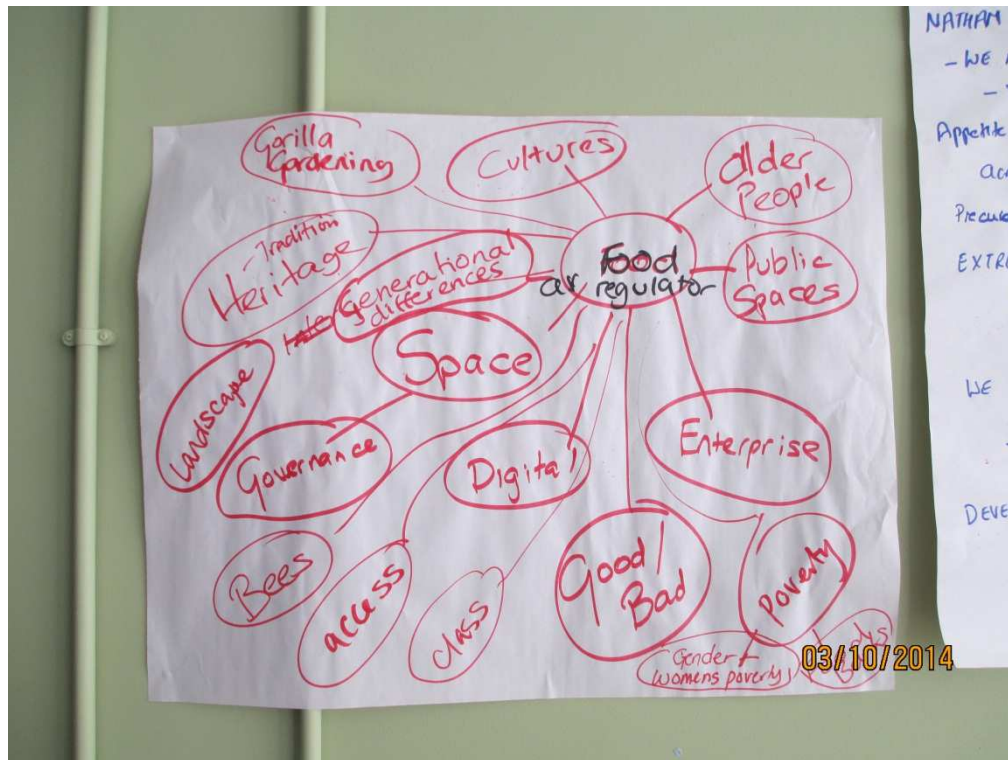 Gorilla
Gardening
Cultures
Older
People
- Tradition
Heritage
Generational
differences
Food
regulator
Public
Spaces
Space
Landscape
Governance
Digital
Enterprise
Bees
access
class
Good/
Bad
poverty
Gender +
womens poverty
03/10/2014
NATHAN
- WE
-
Appetite
EXTR
WE
DEVE